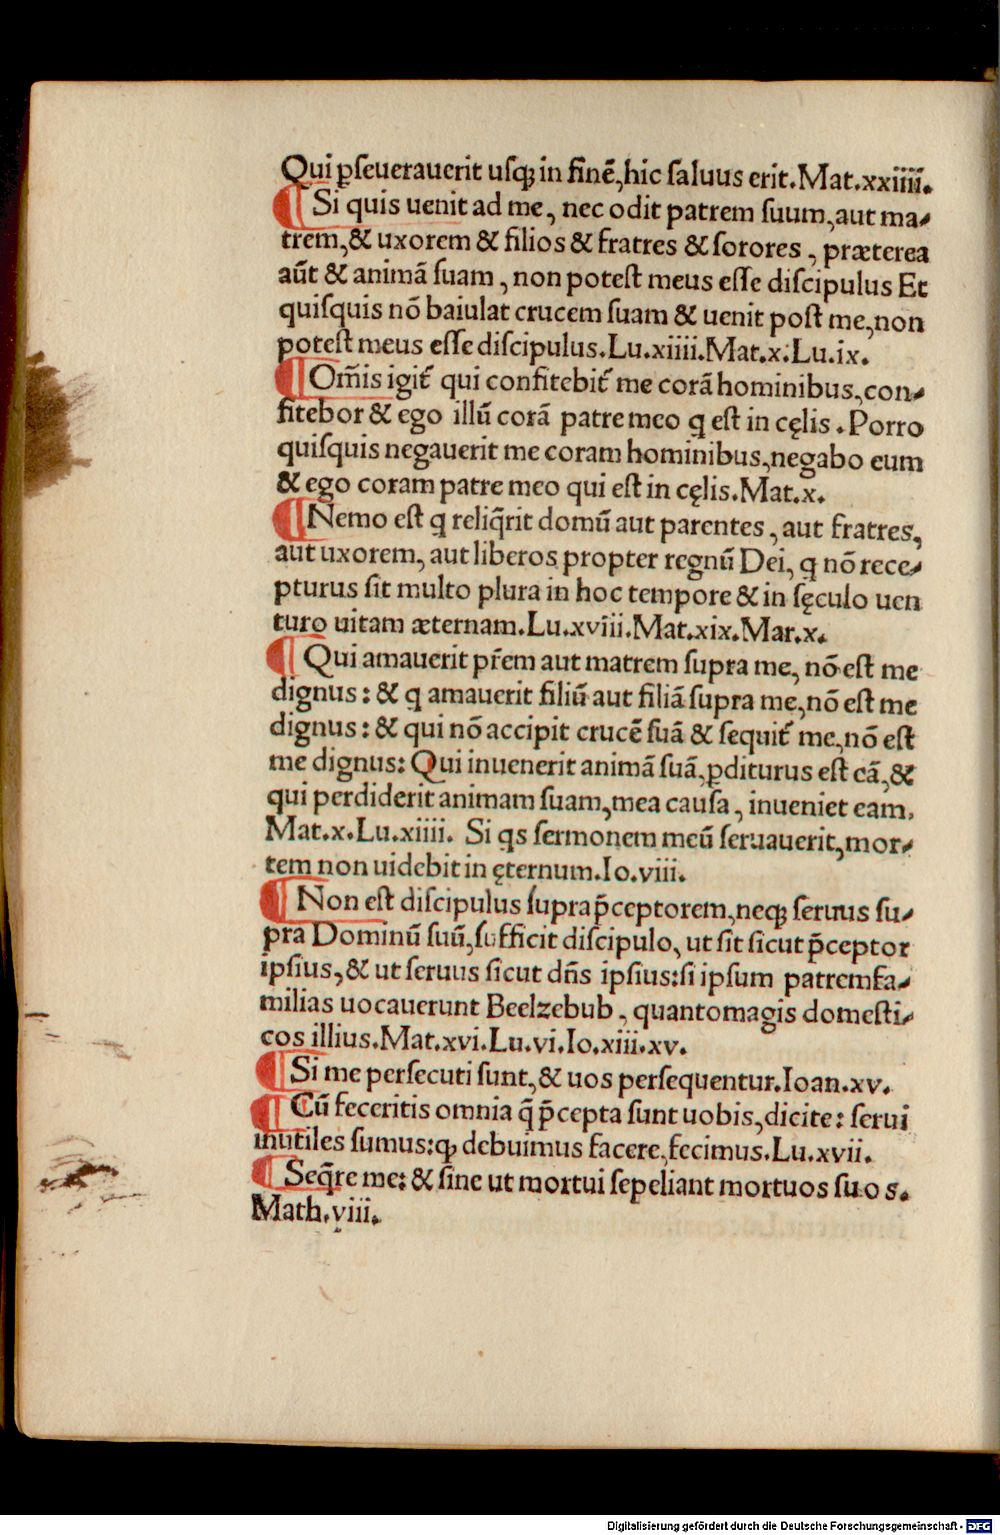 Qui ꝑſeuerauerit uſꝙ in finẽ, hic ſaluus erit. Mat. xxiiii.
¶ Si quis uenit ad me, nec odit patrem ſuum, aut ma-
trem, & uxorem & filios & fratres & ſorores, præterea
aũt & animã ſuam, non poteſt meus eſſe diſcipulus Et
quiſquis nõ baiulat crucem ſuam & uenit poſt me, non
poteſt meus eſſe diſcipulus. Lu. xiiii. Mat. x. Lu. ix.
¶ Om̃is igit᷑ qui confitebit᷑ me corã hominibus, con-
fitebor & ego illũ corã patre meo ꝗ eſt in cęlis. Porro
quiſquis negauerit me coram hominibus, negabo eum
& ego coram patre meo qui eſt in cęlis. Mat. x.
¶ Nemo eſt ꝗ reliq̃rit domũ aut parentes, aut fratres,
aut uxorem, aut liberos propter regnũ Dei, ꝗ nõ rece-
pturus ſit multo plura in hoc tempore & in ſęculo uen
turo uitam æternam. Lu. xviii. Mat. xix. Mar. x.
¶ Qui amauerit pr̃em aut matrem ſupra me, nõ eſt me
dignus: & ꝗ amauerit filiũ aut filiã ſupra me, nõ eſt me
dignus: & qui nõ accipit crucẽ ſuã & ſequit᷑ me, nõ eſt
me dignus: Qui inuenerit animã ſuã, ꝑditurus eſt eã, &
qui perdiderit animam ſuam, mea cauſa, inueniet eam.
Mat. x. Lu. xiiii. Si ꝗs ſermonem meũ ſeruauerit, mor-
tem non uidebit in ęternum. Io. viii.
¶ Non eſt diſcipulus ſupra p̃ceptorem, neꝙ ſeruus ſu-
pra Dominũ ſuũ, ſufficit diſcipulo, ut ſit ſicut p̃ceptor
ipſius, & ut ſeruus ſicut dñs ipſius: ſi ipſum patremfa-
milias uocauerunt Beelzebub, quantomagis domeſti-
cos illius. Mat. xvi. Lu. vi. Io. xiii. xv.
¶ Si me perſecuti ſunt, & uos perſequentur. Ioan. xv.
¶ Cũ feceritis omnia q̃ p̃cepta ſunt uobis, dicite: ſerui
inutiles ſumus: ꝙ debuimus facere, fecimus. Lu. xvii.
¶ Seq̃re me: & ſine ut mortui ſepeliant mortuos ſuos.
Math. viii.
Digitalisierung gefördert durch die Deutsche Forschungsgemeinschaft - DFG